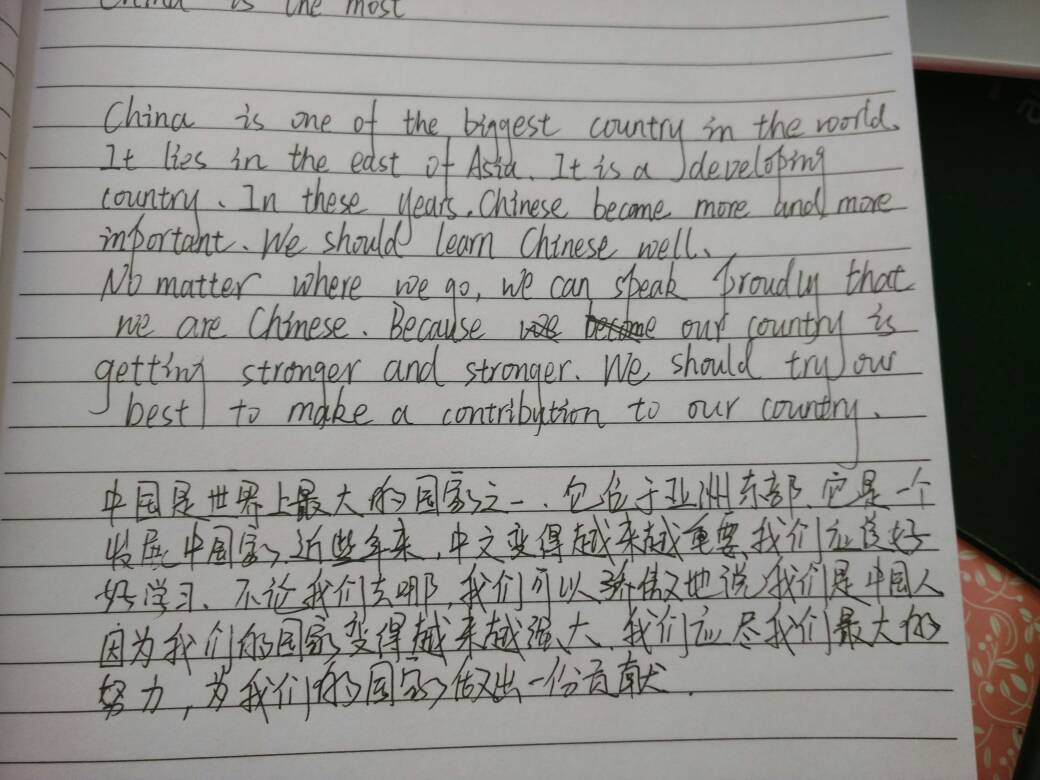 China is the most
China is one of the biggest country in the world.
It lies in the east of Asia. It is a developing
country. In these years. Chinese become more and more
important. We should learn Chinese well.
No matter where we go, we can speak proudly that
we are Chinese. Because our country is
getting stronger and stronger. We should try our
best to make a contribution to our country.
中国是世界上最大的国家之一.它位于亚洲东部.它是一个
发展中国家.近些年来,中文变得越来越重要.我们应该好
好学习.不论我们去哪,我们可以骄傲地说,我们是中国人
因为我们的国家变得越来越强大.我们应尽我们最大的
努力,为我们的国家做出一份贡献.